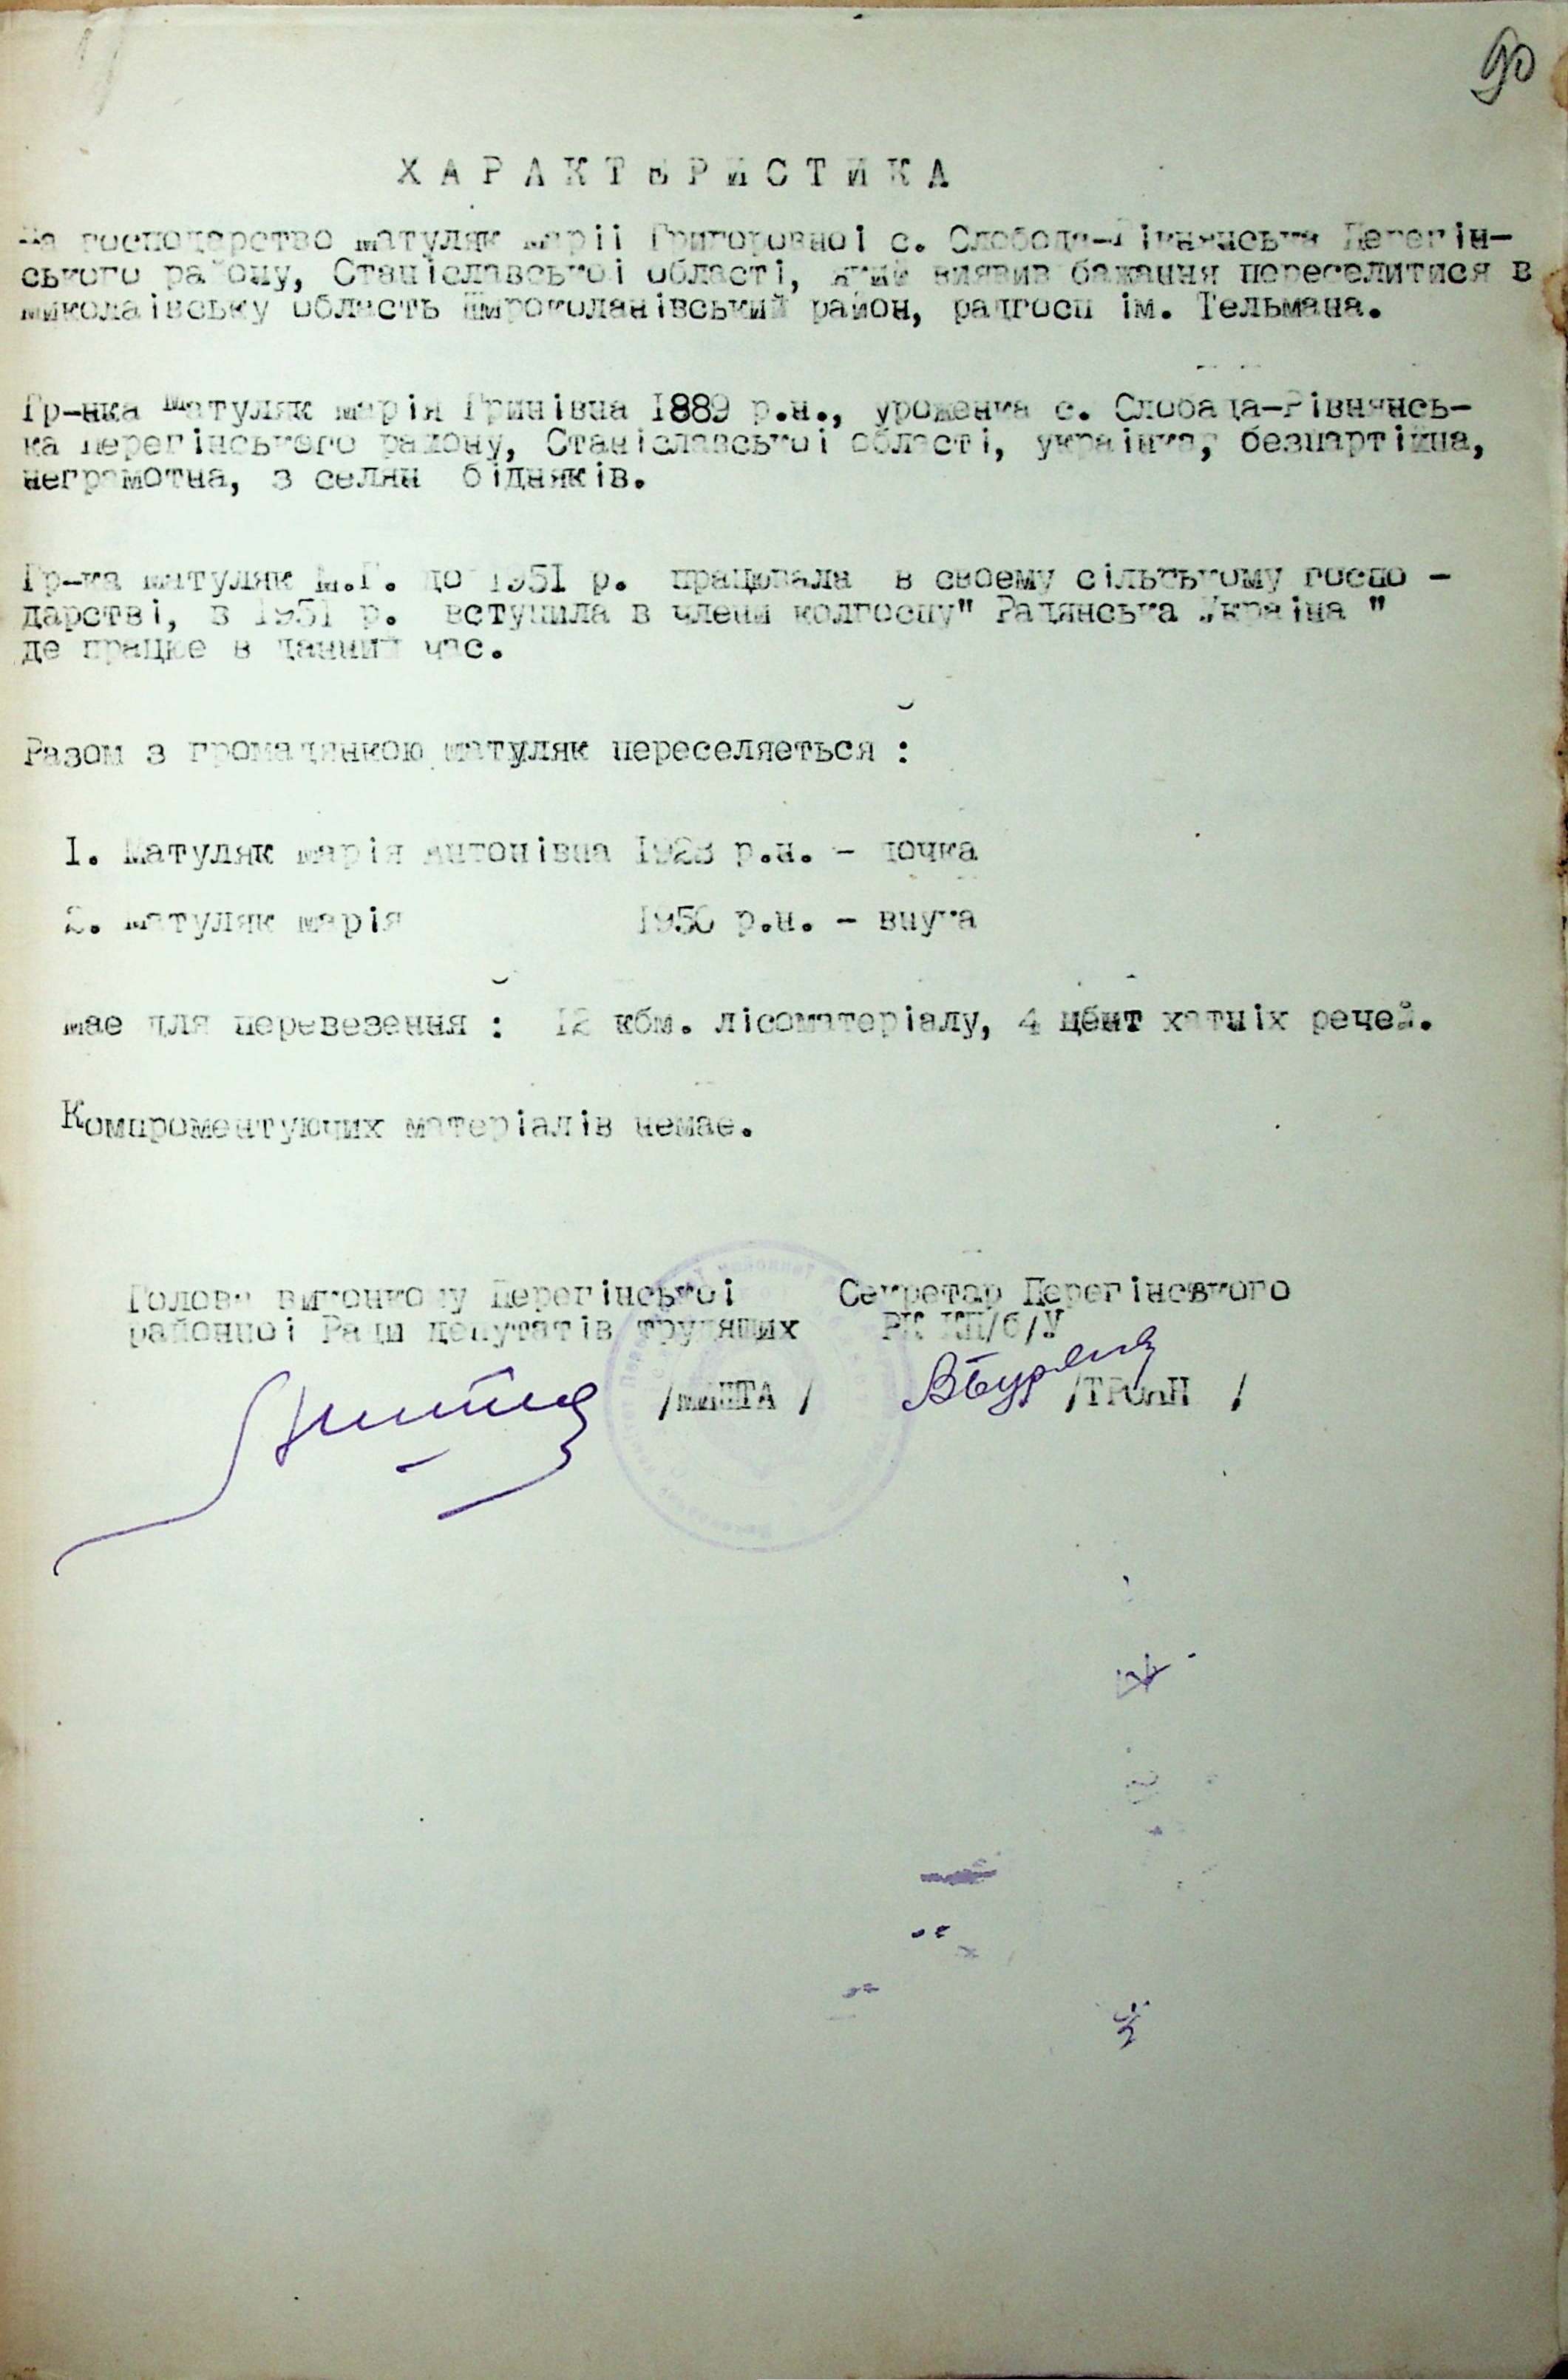 90
ХАРАКТЕРИСТИКА
На господарство матуляк марії Григоровної с. Слобода-Рівнянська Перегін-
ського району, Станіславської області, який виявив бажання переселитися в
миколаівську область Широколанівський район, радгосп ім. Тельмана.
Гр-нка матуляк марія Гринівна 1889 р.н., уроженка с. Слобада-Рівнянсь-
ка перегінського району, Станіславської області, українка, безпартійна,
неграмотна, з селян бідняків.
Гр-ка матуляк М.Г. до 1951 р. працювала в своему сільському госпо -
дарстві, в 1951 р. вступила в члени колгоспу" Радянська Україна "
де працює в данний час.
Разом з громадянкою матуляк переселяеться :
1. Матуляк марія антонівна 1928 р.н. - дочка
2. матуляк марія 1950 р.н. - внука
має для перевезення : 12 кбм. лісоматеріалу, 4 цент хатніх речей.
Компроментуючих матеріалів немає.
Голова виконкому Перегінської Секретар Перегінського
районної Ради депутатів трудящих РК КП/б/У
/ /ТРОЯН /